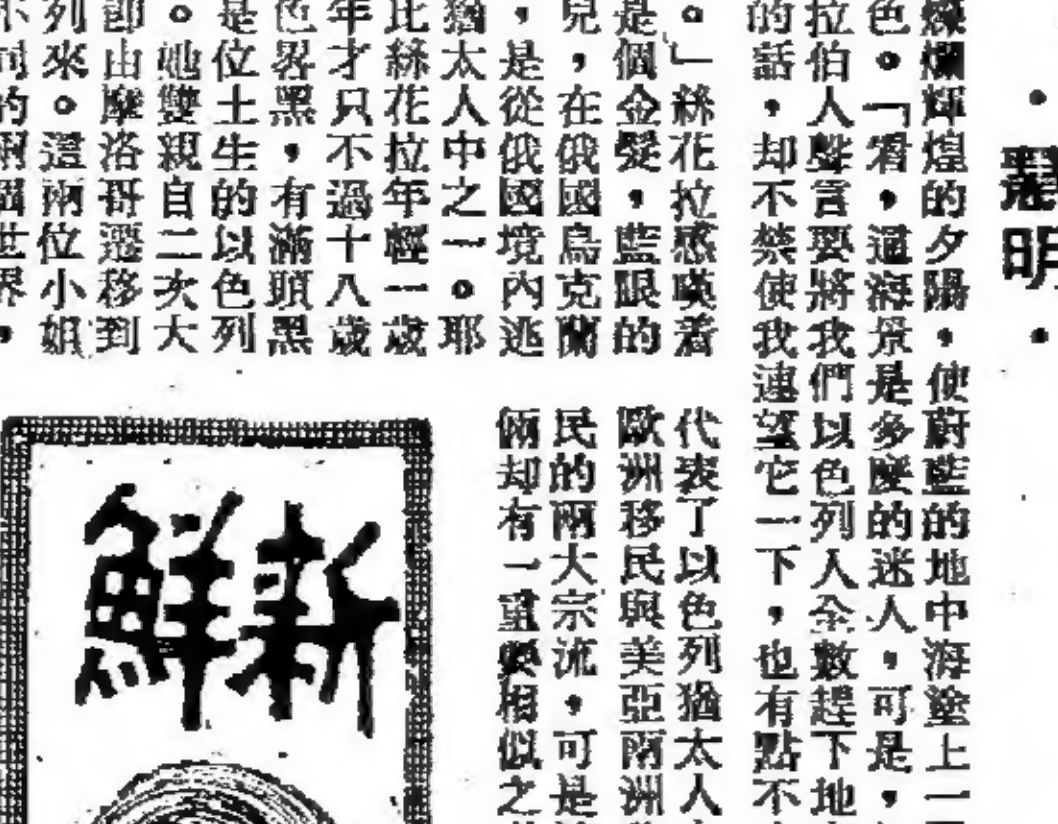 ・慧明・
燦爛輝煌的夕陽,使蔚藍的地中海塗上一
色。「看,這海景是多麼的迷人,可是,
拉伯人聲言要將我們以色列人全數趕下地
的話,却不禁使我連望它一下,也有點不
。」絲花拉感嘆着
是個金髮,藍眼的
兒,在俄國烏克蘭
,是從俄國境內逃
猶太人中之一。耶
比絲花拉年輕一歲
年才只不過十八歲
色畧黑,有滿頭黑
是位土生的以色列
。她雙親自二次大
即由摩洛哥遷移到
列來。這兩位小姐
不同的兩個世界,
代表了以色列猶太人
歐洲移民與美亞兩洲
民的兩大宗流,可是
倆却有一重要相似之
新鮮